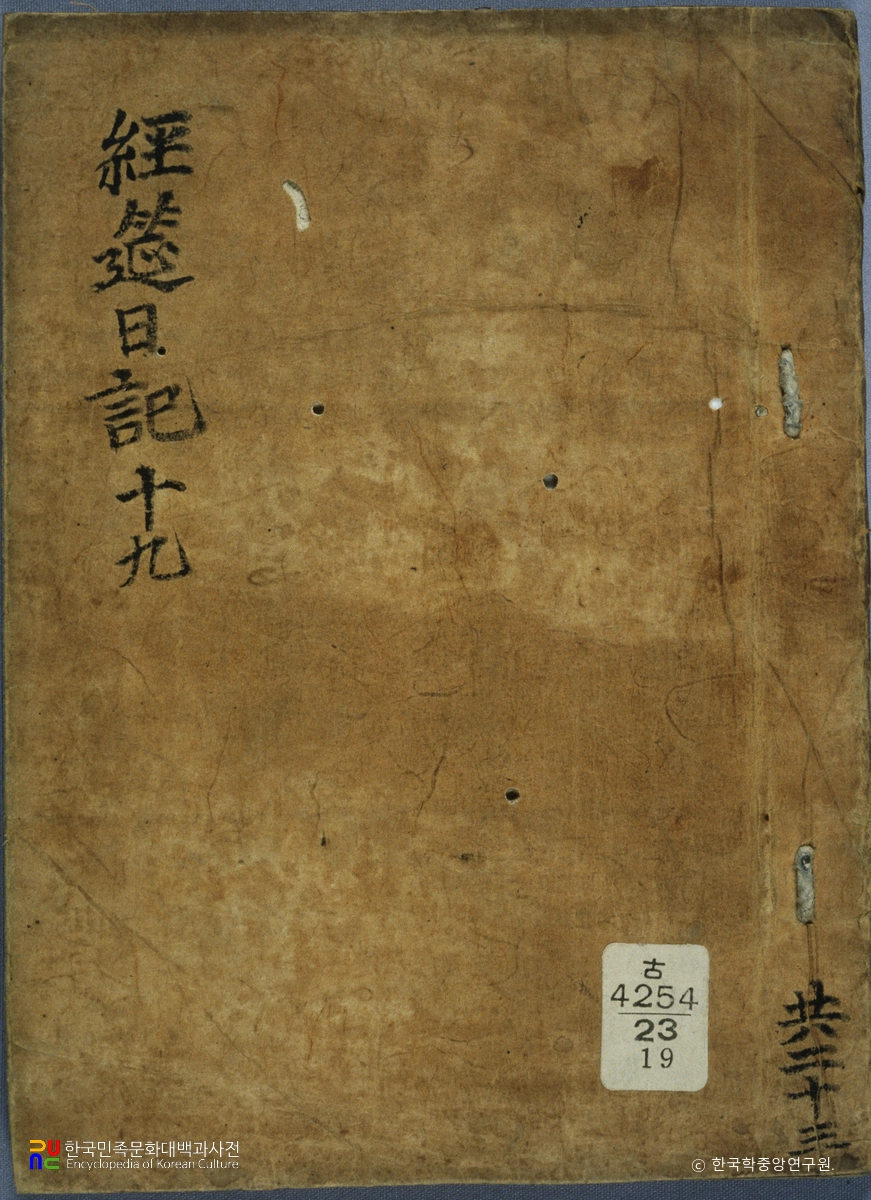 經筵日記十九
共二十三
古
4254
23
19
한국민족문화대백과사전
Encyclopedia of Korean Culture
© 한국학중앙연구원